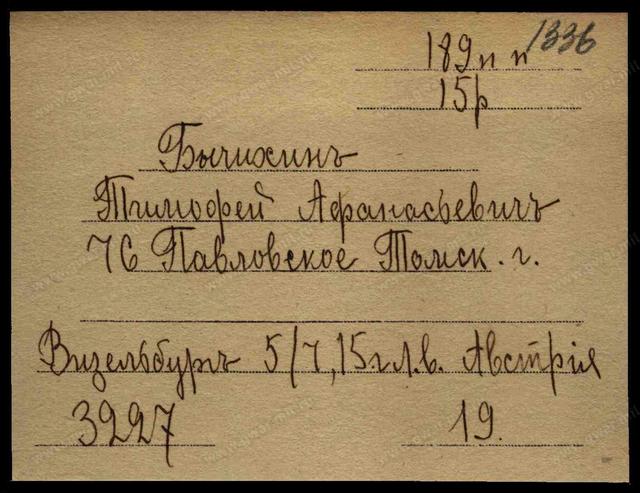 1336
189 п п
15 р
Бычихинъ
Тимофей Афанасьевичъ
76 Павловское Томск. г.
Визельбургъ 5/7, 15 г. Л. в. Австрія
3227 19.